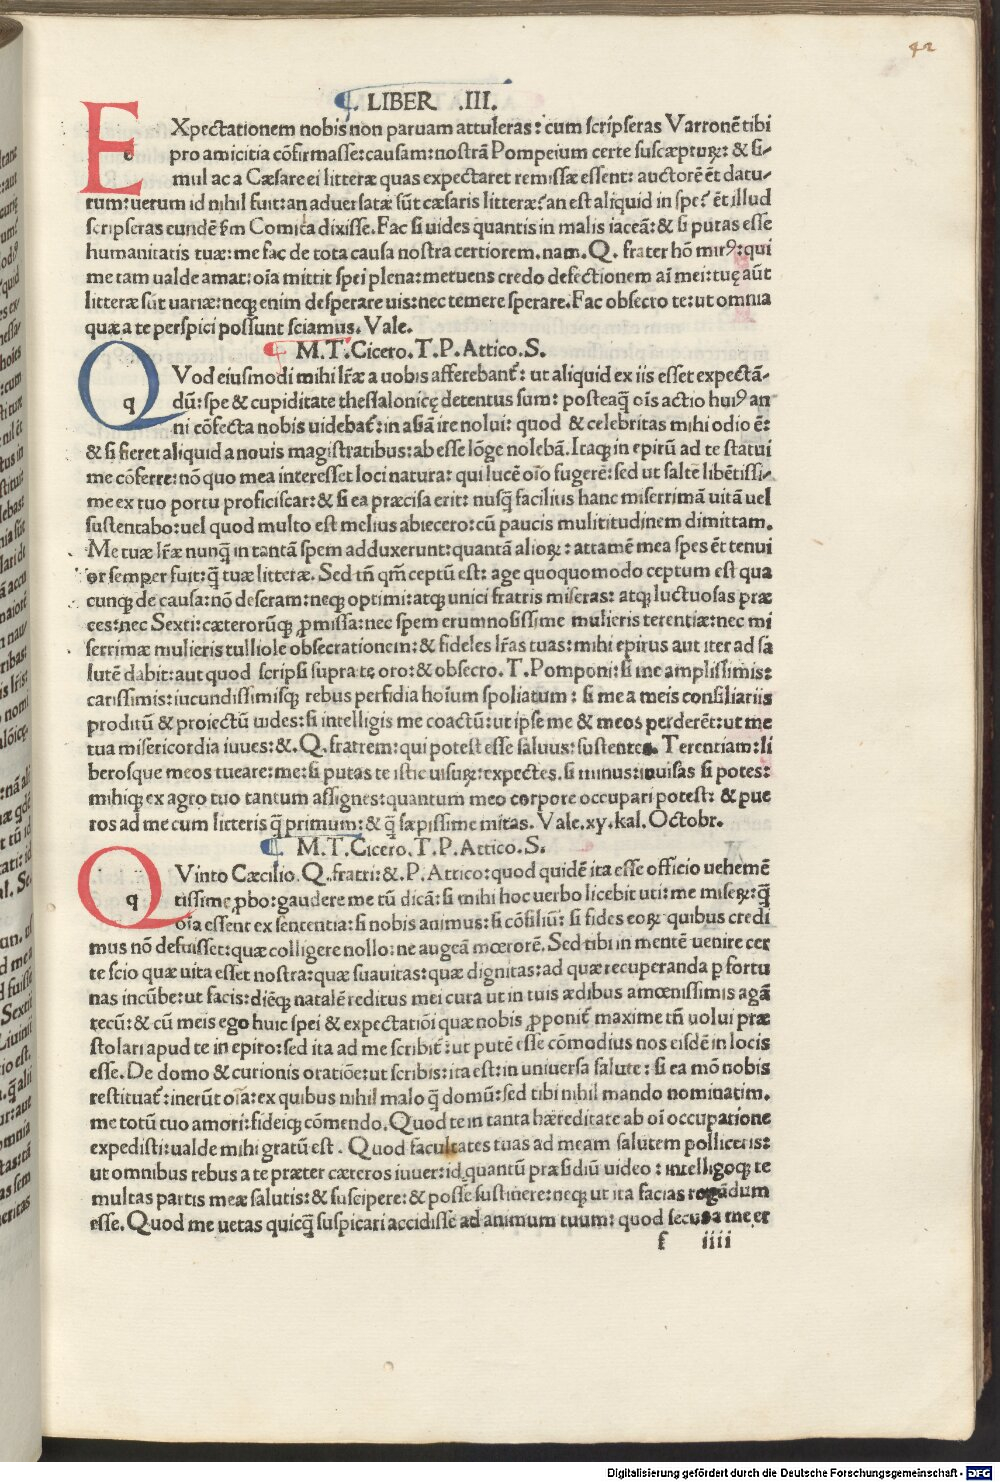 42
LIBER .III.
EXpectationem nobis non paruam attuleras: cum scripseras Varronē tibi
e pro amicitia cōfirmasse: causam: nostrā Pompeium certe suscæpturꝝ: & si-
mul ac a Cæsare ei litteræ quas expectaret remissæ essent: auctorē ēt datu-
rum: uerum id nihil fuit: an aduersatæ sūt cæsaris litteræ? an est aliquid in spe? ēt illud
scripseras eundē s̄m Comicia dixisse. Fac si uides quantis in malis iaceā: & si putas esse
humanitatis tuæ: me fac de tota causa nostra certiorem. nam. Q. frater hō mirꝰ: qui
me tam ualde amat: oīa mittit spei plena: metuens credo defectionem aīmei: tuę aūt
litteræ sūt uariæ: neqꝫ enim desperare uis: nec temere sperare. Fac obsecro te: ut omnia
quæ a te perspici possunt sciamus. Vale.
M.T.Cicero.T.P.Attico.S.
QVod eiusmodi mihi lr̄æ a uobis afferebant᷑: ut aliquid ex iis esset expectā-
q dū: spe & cupiditate thessalonicę detentus sum: posteaq̄ oīs actio huiꝰ an
ni cōfecta nobis uidebat᷑: in asiā ire nolui: quod & celebritas mihi odio ē:
& si fieret aliquid a nouis magistratibus: ab esse lōge nolebā. Itaqꝫ in epirū ad te statui
me cōferre: nō quo mea interesset loci natura: qui lucē oīo fugerē: sed ut saltē libētissi-
me ex tuo portu proficiscar: & si ea præcisa erit: nusq̄ facilius hanc miserrimā uitā uel
sustentabo: uel quod multo est melius abiecero: cū paucis mulititudinem dimittam.
Me tuæ lr̄æ nunq̄ in tantā spem adduxerunt: quantā alioꝝ: attamē mea spes ēt tenui
or semper fuit: q̄ tuæ litteræ. Sed tn̄ qm̄ ceptū est: age quoquomodo ceptum est qua
cunqꝫ de causa: nō deseram: neqꝫ optimi: atqꝫ unici fratris miseras: atqꝫ luctuosas præ
ces: nec Sexti: cæterorūqꝫ ꝓmissa: nec spem erumnosissime mulieris terentiæ: nec mi
serrimæ mulieris tulliole obsecrationem: & fideles lr̄as tuas: mihi epirus aut iter ad sa
lutē dabit: aut quod scripsi supra te oro: & obsecro. T. Pomponi: si me amplissimis:
carissimis: iucundissimisqꝫ rebus perfidia hoīum spoliatum: si me a meis consiliariis
proditū & proiectū uides: si intelligis me coactū: ut ipse me & meos perderēt: ut me
tua misericordia iuues: &. Q. fratrem: qui potest esse saluus: sustente. Terentiam: li
berosque meos tueare: me: si putas te istic uisurꝝ: expectes, si minus: inuisas si potes:
mihiqꝫ ex agro tuo tantum assignes: quantum meo corpore occupari potest: & pue
ros ad me cum litteris q̄ primum: & q̄ sæpissime mitas. Vale. xy. kal. Octobr.
M.T.Cicero.T.P.Attico.S.
QVinto Cæcilio. Q. fratri: &. P. Attico: quod quidē ita esse officio uehemē
q tissime ꝓbo: gaudere me tū dicā: si mihi hoc uerbo licebit uti: me miseꝝ: q̄
oīa essent ex sententia: si nobis animus: si cōsiliū: si fides eoꝝ quibus credi
mus nō defuisset: quæ colligere nollo: ne augeā mœrorē. Sed tibi in mentē uenire cer
te scio quæ uita esset nostra: quæ suauitas: quæ dignitas: ad quæ recuperanda ꝑ fortu
nas incūbe: ut facis: diēqꝫ natalē reditus mei cura ut in tuis ædibus amœnissimis agā
tecū: & cū meis ego huic spei & expectatiōi quæ nobis ꝓponit᷑ maxime tn̄ uolui præ
stolari apud te in epiro: sed ita ad me scribit᷑: ut putē esse cōmodius nos eisdē in locis
esse. De domo & curionis oratiōe: ut scribis: ita est: in uniuersa salute: si ea mō nobis
restituat᷑: inerūt oīa: ex quibus nihil malo q̄ domū: sed tibi nihil mando nominatim.
me totū tuo amori: fideiqꝫ cōmendo. Quod te in tanta hæreditate ab oī occupatione
expedisti: ualde mihi gratū est. Quod facultates tuas ad meam salutem polliceris:
ut omnibus rebus a te præter cæteros iuuer: id quantū præsidiū uideo: intelligoqꝫ te
multas partis meæ salutis: & suscipere: & posse sustinere: neqꝫ ut ita facias rogādum
esse. Quod me uetas quicq̄ suspicari accidisse ad animum tuum: quod secus a me er
f iiii
Digitalisierung gefördert durch die Deutsche Forschungsgemeinschaft - DFG